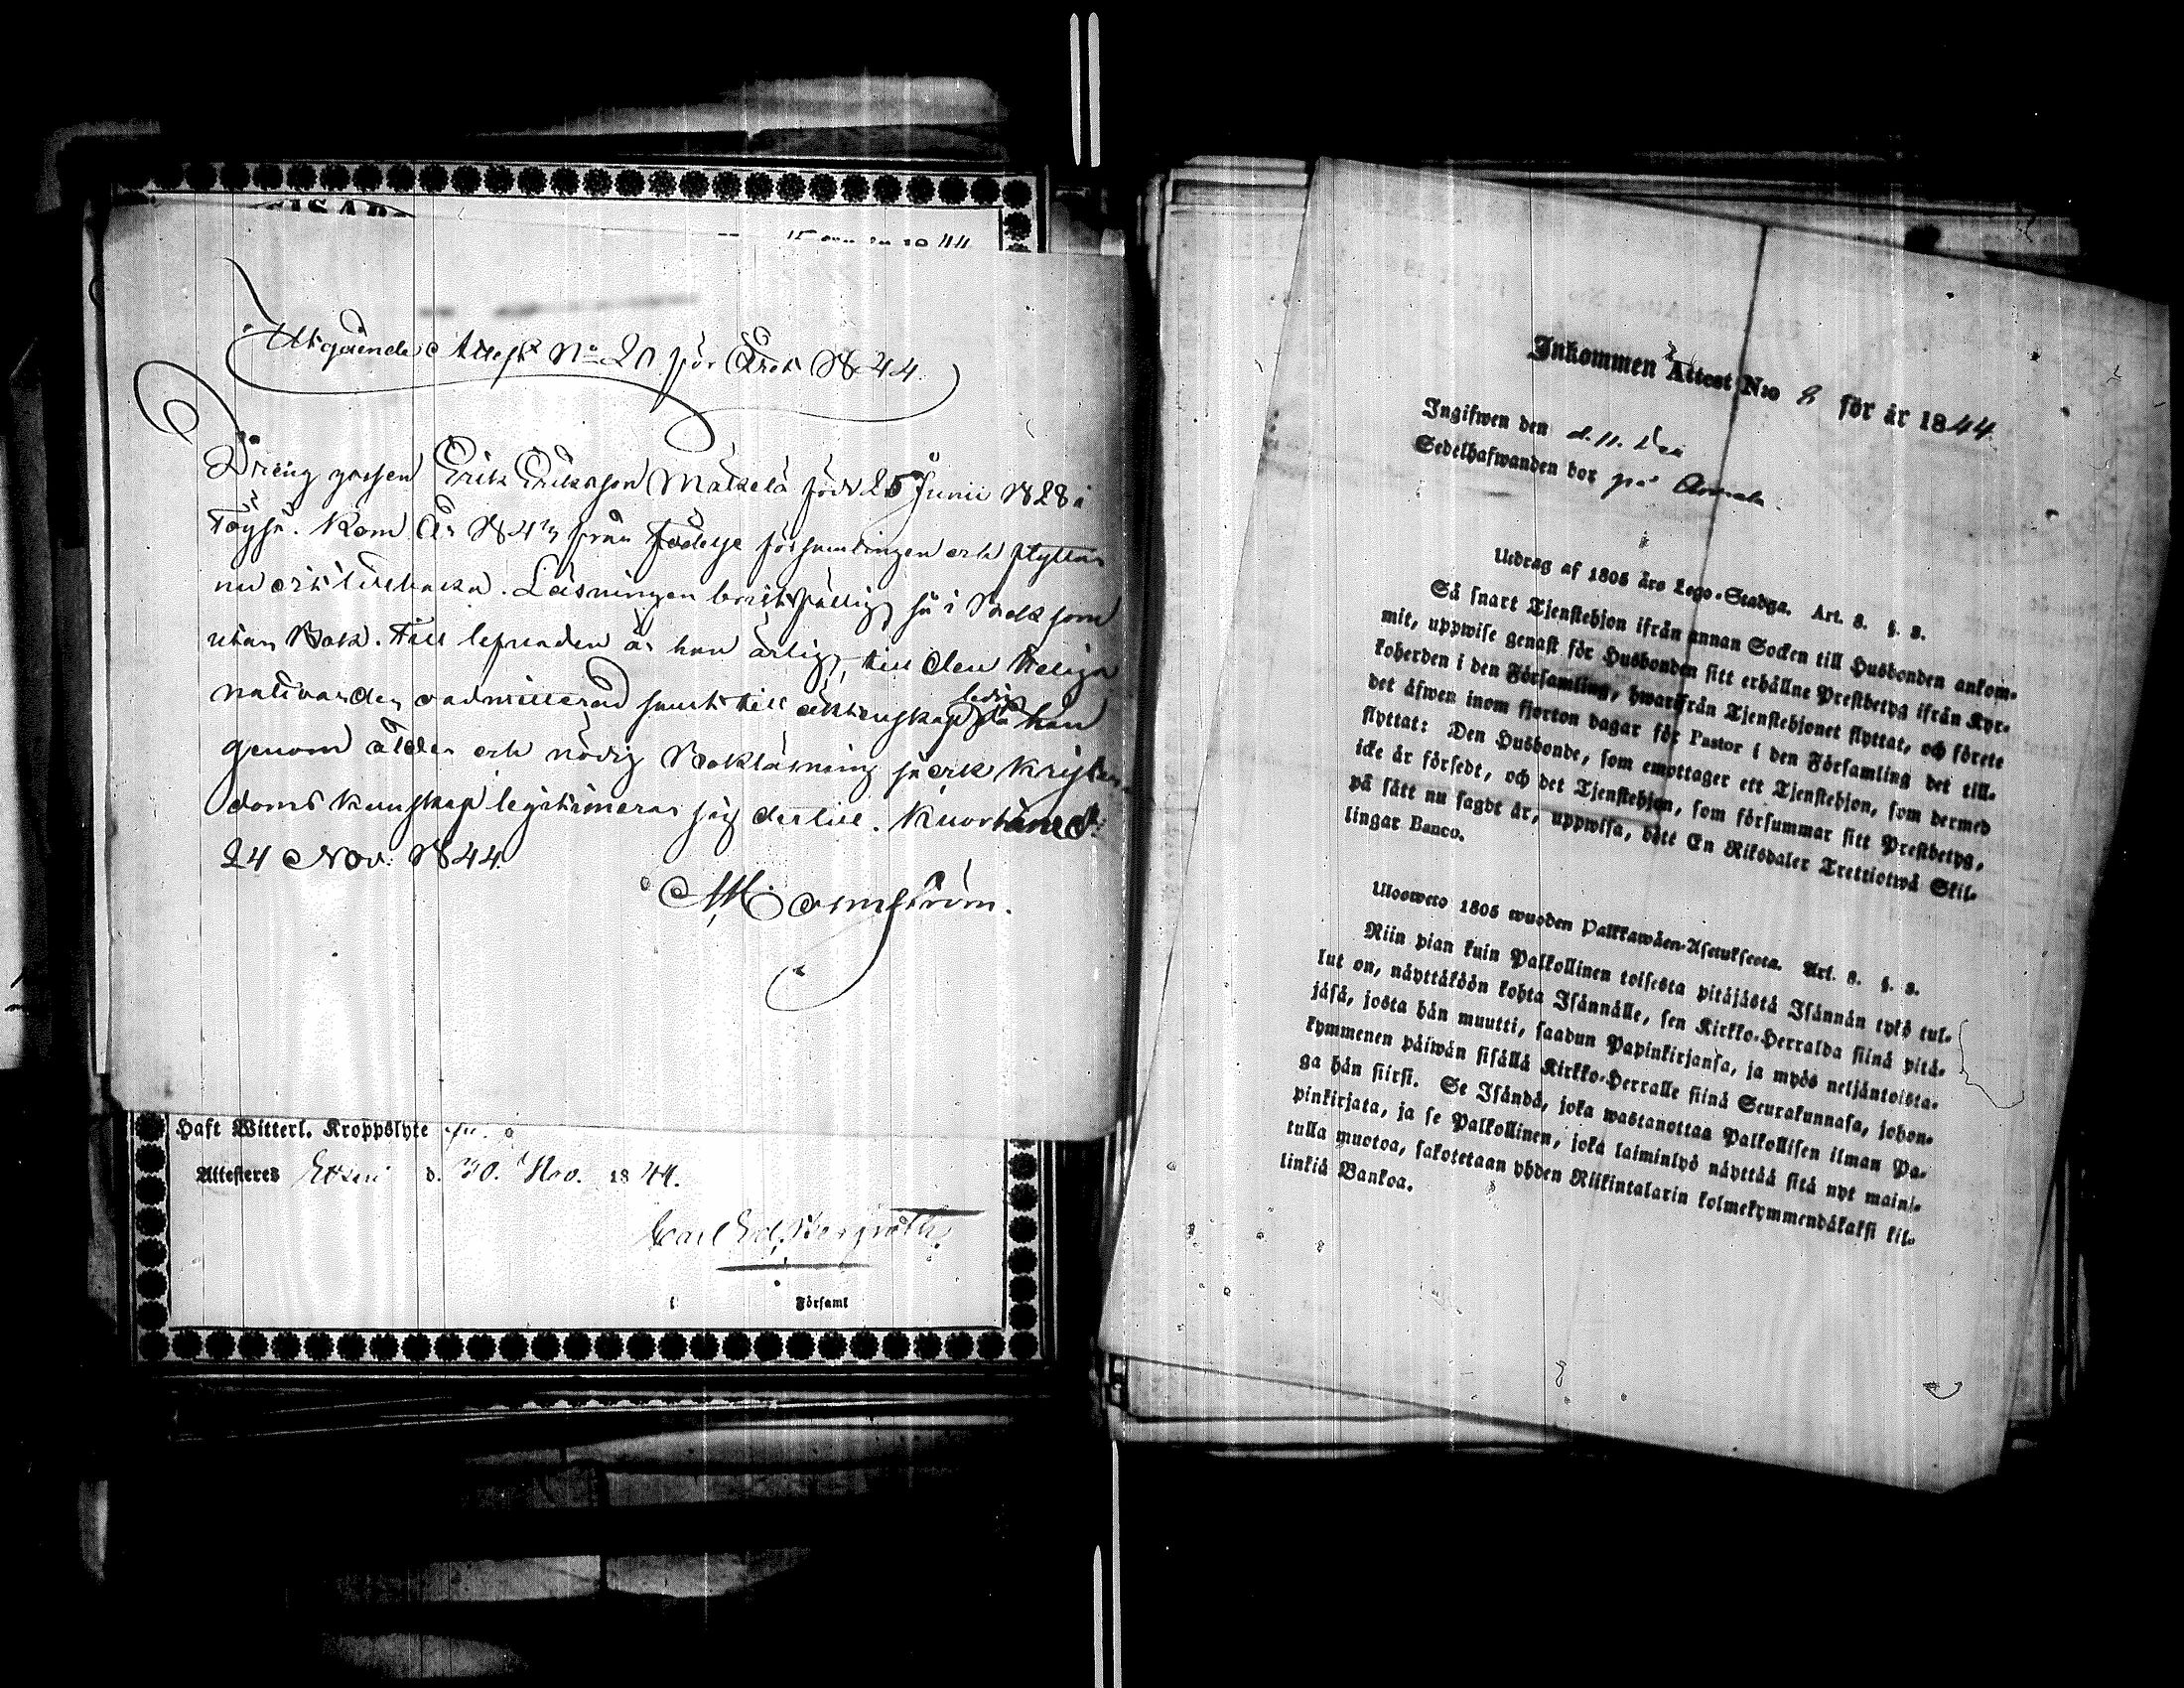 Utgående Attest No 20 för Året 1844.
Dreng gossen Erik Eriksson Mäkelä född 25 Junii 1828 i
Töysä. Kom År 1843 från Födelse församlingen och flyttar
nu till. Läsningen bristfällig så i Bok som
utan Bok. Till lefnaden är han ärlig, till den heliga
nattvarden oadmitterad samt till äktenskap ledig då han
genom ålder och nödig Bokläsning så ock Kristen-
doms kunskap legitimerar sig dertill. Kuortane d:
24 Nov: 1844.
Haft Witterl. Kroppslyte
Attesteres d. 30. Nov. 1844.
Carl Ed. Bergroth
i Församl
Inkommen Attest N:o 8 för år 1844.
Ingifwen den d. 11. Dec
Sedelhafwanden bor på
Utdrag af 1805 års Lego-Stadga. Art. 8. §. 2.
Så snart Tjenstehjon ifrån annan Socken till Husbonden ankom-
mit, uppwise genast för Husbonden sitt erhållne Prestbetyg ifrån Kyr-
koherden i den Församling, hwarifrån Tjenstehjonet flyttat, och förete
det äfwen inom fjorton dagar för Pastor i den Församling det till-
flyttat: Den Husbonde, som emottager ett Tjenstehjon, som dermed
icke är försedt, och det Tjenstehjon, som försummar sitt Prestbetyg,
på sått nu sagdt är, uppwisa, böte En Riksdaler Trettiotwå Skil-
lingar Banco.
Uloswero 1805 wuoden Palkkawäen-Asetuksesta. Art. 8. §. 2.
Niin pian kuin Palkollinen toisesta pitäjästä Isännän tykö tul-
lut on, näyttäköön kohta Isännälle, sen Kirkko-Herralda siinä pitä-
jäsä, josta hän muutti, saadun Papinkirjansa, ja myös neljäntoista-
kymmenen päiwän sisällä Kirkko-Herralle siinä Seurakunnasa, johon-
ga hän siirsi. Se Isändä, joka wastanottaa Palkollisen ilman Pa-
pinkirjata, ja se Palkollinen, joka laiminlyö näyttää sitä nyt maini-
tulla muotoa, sakotetaan yhden Riikintalarin kolmekymmendäkaksi kil-
linkiä Bankoa.